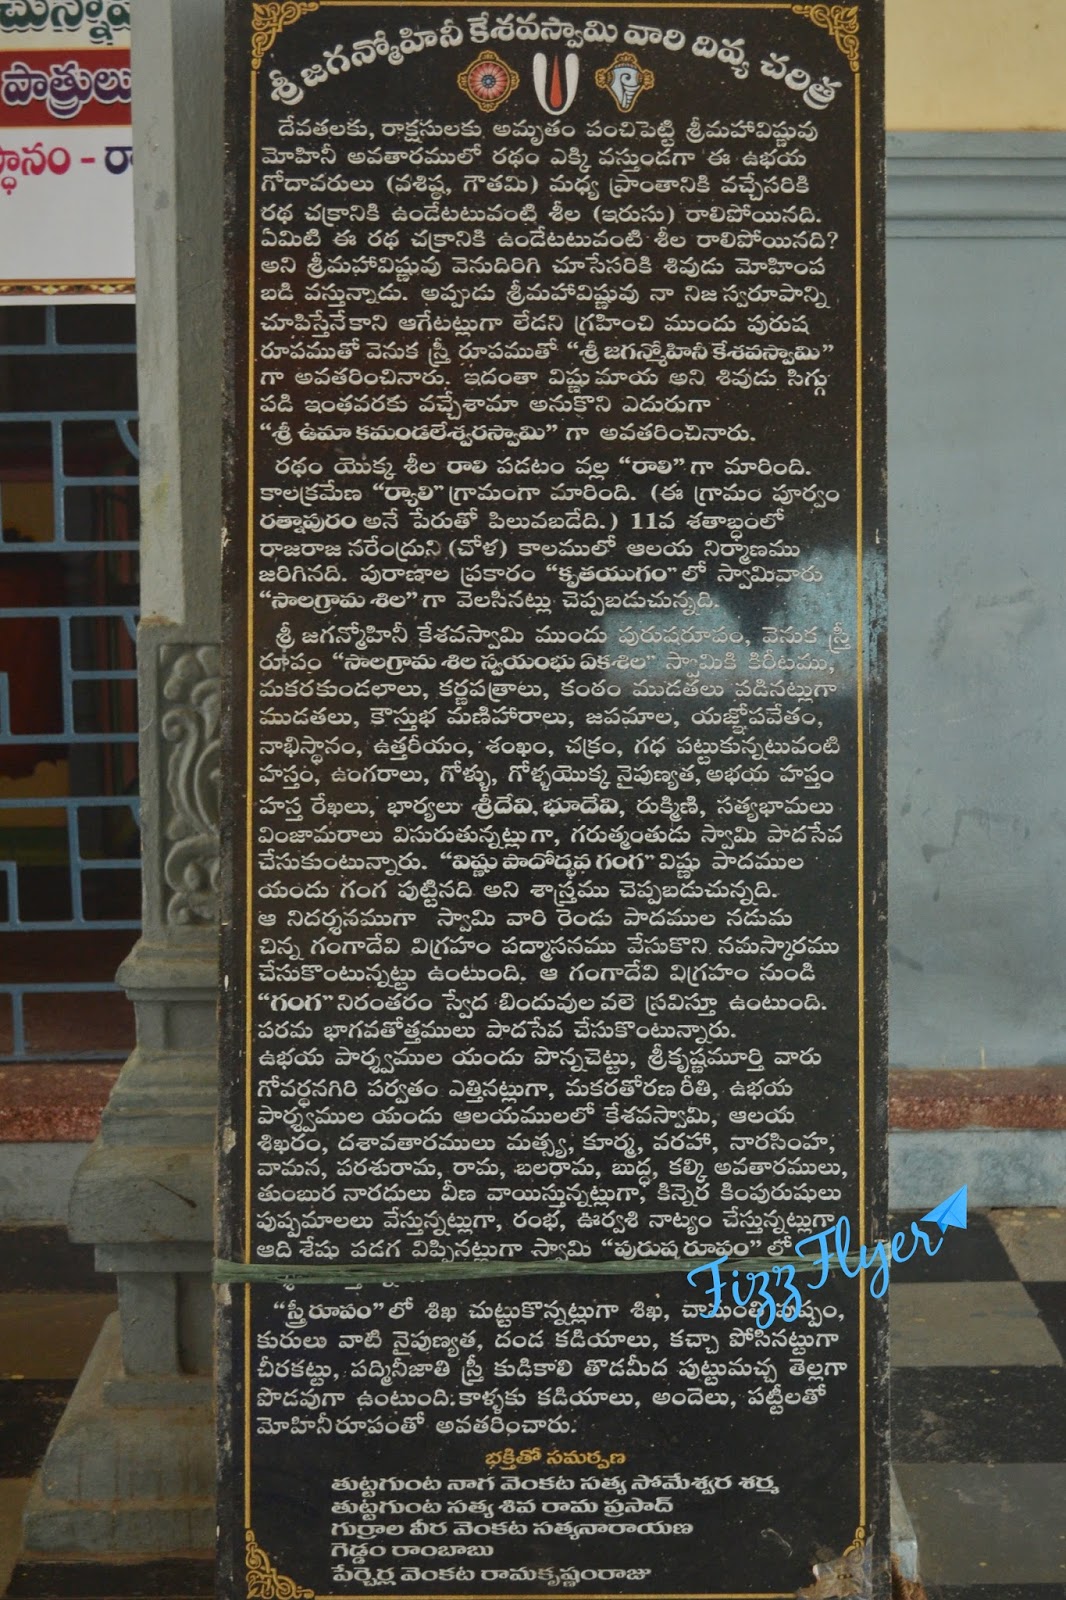 చున్నావ
పాత్రులు
స్థానం - రా
శ్రీ జగన్మోహినీ కేశవస్వామి వారి దివ్య చరిత్ర
దేవతలకు, రాక్షసులకు అమృతం పంచిపెట్టి శ్రీమహావిష్ణువు
మోహినీ అవతారములో రథం ఎక్కి వస్తుండగా ఈ ఉభయ
గోదావరులు (వశిష్ఠ, గౌతమి) మధ్య ప్రాంతానికి వచ్చేసరికి
రథ చక్రానికి ఉండేటటువంటి శీల (ఇరుసు) రాలిపోయినది.
ఏమిటి ఈ రథ చక్రానికి ఉండేటటువంటి శీల రాలిపోయినది?
అని శ్రీమహావిష్ణువు వెనుదిరిగి చూసేసరికి శివుడు మోహింప
బడి వస్తున్నాడు. అప్పుడు శ్రీమహావిష్ణువు నా నిజ స్వరూపాన్ని
చూపిస్తేనేకాని ఆగేటట్లుగా లేడని గ్రహించి ముందు పురుష
రూపముతో వెనుక స్త్రీ రూపముతో “శ్రీ జగన్మోహినీ కేశవస్వామి”
గా అవతరించినారు. ఇదంతా విష్ణుమాయ అని శివుడు సిగ్గు
పడి ఇంతవరకు వచ్చేశామా అనుకొని ఎదురుగా
“శ్రీ ఉమా కమండలేశ్వరస్వామి” గా అవతరించినారు.
రథం యొక్క శీల రాలి పడటం వల్ల “రాలి” గా మారింది.
కాలక్రమేణ “ర్యాలి” గ్రామంగా మారింది. (ఈ గ్రామం పూర్వం
రత్నాపురం అనే పేరుతో పిలువబడేది.) 11వ శతాబ్దంలో
రాజరాజ నరేంద్రుని (చోళ) కాలములో ఆలయ నిర్మాణము
జరిగినది. పురాణాల ప్రకారం “కృతయుగం” లో స్వామివారు
“సాలగ్రామ శిల” గా వెలసినట్లు చెప్పబడుచున్నది.
శ్రీ జగన్మోహినీ కేశవస్వామి ముందు పురుషరూపం, వెనుక స్త్రీ
రూపం “సాలగ్రామ శిల స్వయంభు ఏకశిల” స్వామికి కిరీటము,
మకరకుండలాలు, కర్ణపత్రాలు, కంఠం ముడతలు పడినట్లుగా
ముడతలు, కౌస్తుభ మణిహారాలు, జపమాల, యజ్ఞోపవేతం,
నాభిస్థానం, ఉత్తరీయం, శంఖం, చక్రం, గధ పట్టుకున్నటువంటి
హస్తం, ఉంగరాలు, గోళ్ళు, గోళ్ళయొక్క నైపుణ్యత, అభయ హస్తం
హస్త రేఖలు, భార్యలు శ్రీదేవి, భూదేవి, రుక్మిణి, సత్యభామలు
వింజామరాలు విసురుతున్నట్లుగా, గరుత్మంతుడు స్వామి పాదసేవ
చేసుకుంటున్నారు. “విష్ణు పాదోద్భవ గంగ” విష్ణు పాదముల
యందు గంగ పుట్టినది అని శాస్త్రము చెప్పబడుచున్నది.
ఆ నిదర్శనముగా స్వామి వారి రెండు పాదముల నడుమ
చిన్న గంగాదేవి విగ్రహం పద్మాసనము వేసుకొని నమస్కారము
చేసుకొంటున్నట్టు ఉంటుంది. ఆ గంగాదేవి విగ్రహం నుండి
“గంగ” నిరంతరం స్వేద బిందువుల వలె స్రవిస్తూ ఉంటుంది.
పరమ భాగవతోత్తములు పాదసేవ చేసుకొంటున్నారు.
ఉభయ పార్శ్వముల యందు పొన్నచెట్టు, శ్రీకృష్ణమూర్తి వారు
గోవర్ధనగిరి పర్వతం ఎత్తినట్లుగా, మకరతోరణ రీతి, ఉభయ
పార్శ్వముల యందు ఆలయములలో కేశవస్వామి, ఆలయ
శిఖరం, దశావతారములు మత్స్య, కూర్మ, వరహా, నారసింహ,
వామన, పరశురామ, రామ, బలరామ, బుద్ధ, కల్కి అవతారములు,
తుంబుర నారదులు వీణ వాయిస్తున్నట్లుగా, కిన్నెర కింపురుషులు
పుష్పమాలలు వేస్తున్నట్లుగా, రంభ, ఊర్వశి నాట్యం చేస్తున్నట్లుగా
ఆది శేషు పడగ విప్పినట్లుగా స్వామి “పురుష రూపం” లో
“స్త్రీరూపం” లో శిఖ చుట్టుకొన్నట్లుగా శిఖ, చామంతి పుష్పం,
కురులు వాటి నైపుణ్యత, దండ కడియాలు, కచ్చా పోసినట్టుగా
చీరకట్టు, పద్మినీజాతి స్త్రీ కుడికాలి తొడమీద పుట్టుమచ్చ తెల్లగా
పొడవుగా ఉంటుంది. కాళ్ళకు కడియాలు, అందెలు, పట్టీలతో
మోహినీరూపంతో అవతరించారు.
భక్తితో సమర్పణ
తుట్టగుంట నాగ వెంకట సత్య సోమేశ్వర శర్మ
తుట్టగుంట సత్య శివ రామ ప్రసాద్
గుర్రాల వీర వెంకట సత్యనారాయణ
గెడ్డం రాంబాబు
పేర్చెర్ల వెంకట రామకృష్ణంరాజు
FizzFlyer